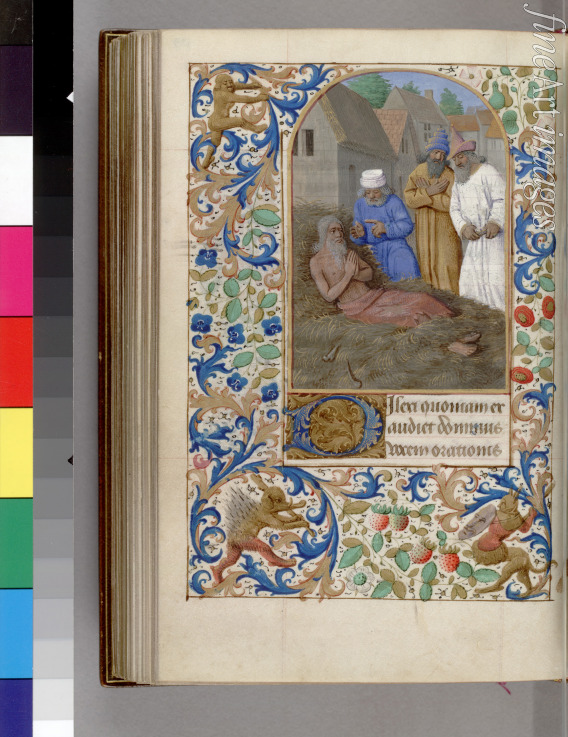 fineArtimages
Ilexi quoniam ex
audiet dominus
vocem orationis